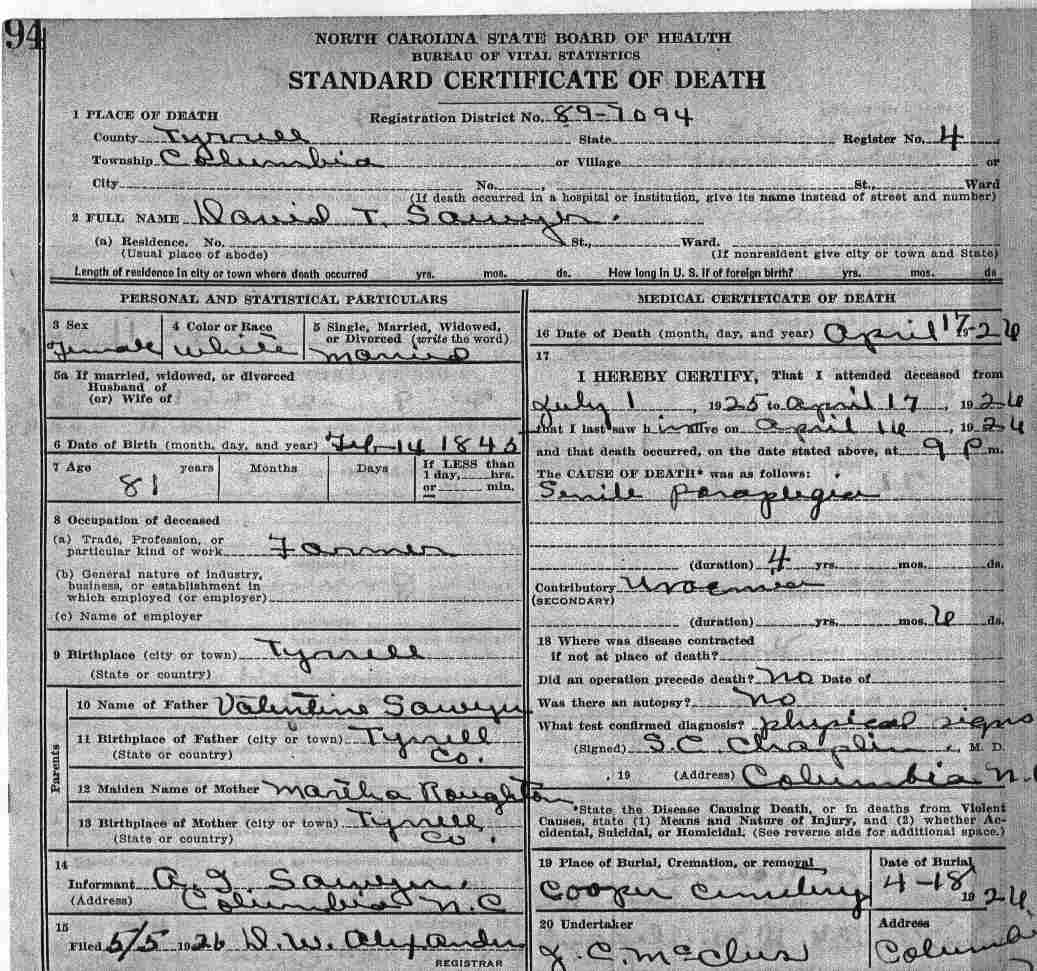 94
NORTH CAROLINA STATE BOARD OF HEALTH
BUREAU OF VITAL STATISTICS
STANDARD CERTIFICATE OF DEATH
1 PLACE OF DEATH Registration District No. 89-7094
County Tyrrell State Register No. 4
Township Columbia or Village or
City No. , St., Ward
(If death occurred in a hospital or institution, give its name instead of street and number)
2 FULL NAME David T. Sawyer.
(a) Residence. No. St., Ward.
(Usual place of abode) (If nonresident give city or town and State)
Length of residence in city or town where death occurred yrs. mos. ds. How long in U. S. if of foreign birth? yrs. mos. ds
PERSONAL AND STATISTICAL PARTICULARS
3 Sex 4 Color or Race 5 Single, Married, Widowed,
or Divorced (write the word)
Female White Married
5a If married, widowed, or divorced
Husband of
(or) Wife of
6 Date of Birth (month, day, and year) Feb-14 1845
7 Age years Months Days If LESS than
1 day, hrs.
or min.
81
8 Occupation of deceased
(a) Trade, Profession, or
particular kind of work Farmer
(b) General nature of industry,
business, or establishment in
which employed (or employer)
(c) Name of employer
9 Birthplace (city or town) Tyrrell
(State or country)
Parents
10 Name of Father Valentine Sawyer
11 Birthplace of Father (city or town) Tyrrell
(State or country) Co.
12 Maiden Name of Mother Martha Roughton
13 Birthplace of Mother (city or town) Tyrrell
(State or country) Co.
14
Informant Sawyer
(Address) Columbia N.C
15
Filed 5/5 1926 D. W. Alexander
REGISTRAR
MEDICAL CERTIFICATE OF DEATH
16 Date of Death (month, day, and year) April 17-26
17
I HEREBY CERTIFY, That I attended deceased from
July 1 , 1925 to April 17 , 1926
that I last saw him alive on April 16 , 1926
and that death occurred, on the date stated above, at 9 P m.
The CAUSE OF DEATH* was as follows:
Senile paraplegia
(duration) 4 yrs. mos. ds.
Contributory Uraemia
(SECONDARY)
(duration) yrs. mos. 6 ds.
18 Where was disease contracted
if not at place of death?
Did an operation precede death? No Date of
Was there an autopsy? No
What test confirmed diagnosis? physical signs
(Signed) S. C. Chaplin , M. D.
, 19 (Address) Columbia N.
*State the Disease Causing Death, or in deaths from Violent
Causes, state (1) Means and Nature of Injury, and (2) whether Ac-
cidental, Suicidal, or Homicidal. (See reverse side for additional space.)
19 Place of Burial, Cremation, or removal Date of Burial
Cooper Cemetery 4-18 1926
20 Undertaker Address
McClus Columb